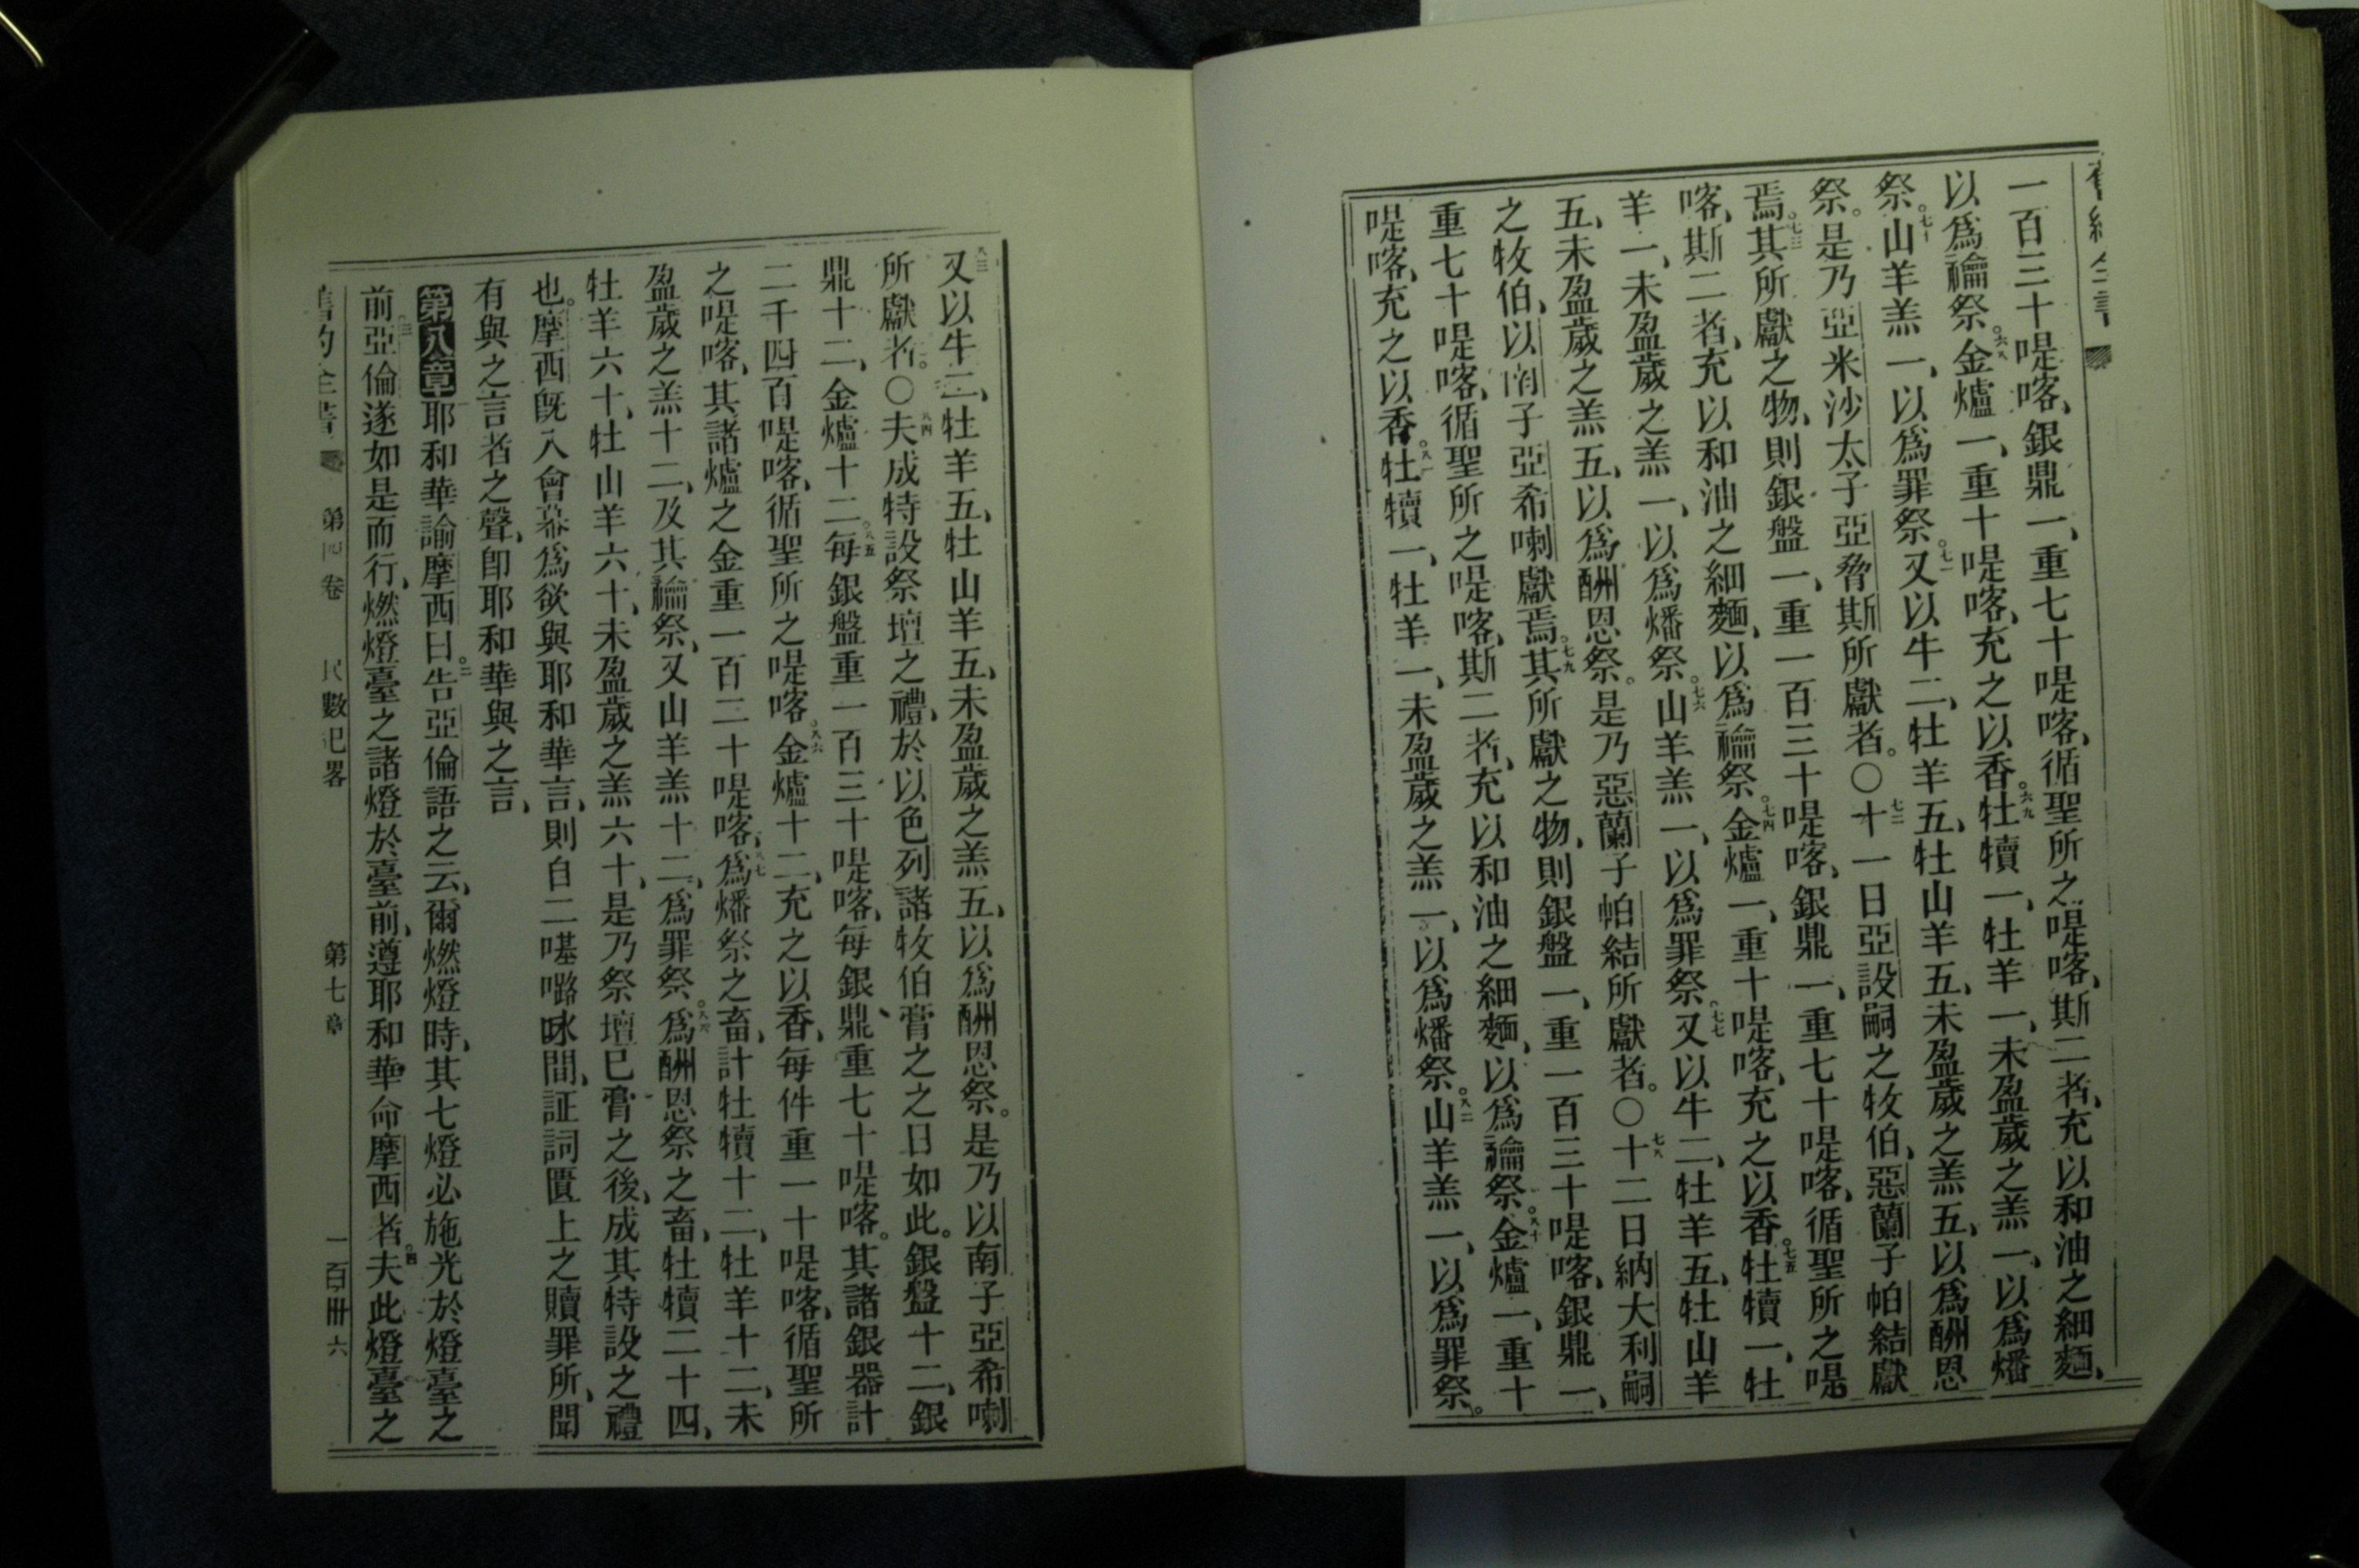 一百三十㖷喀、銀鼎一、重七十㖷喀、循聖所之㖷喀、斯二者、充以和油之細麵、
以爲禴祭。六八金爐一、重十㖷喀、充之以香。六九牡犢一、牡羊一、未盈歲之羔一、以爲燔
祭。七十山羊羔一、以爲罪祭。七一又以牛二、牡羊五、牡山羊五、未盈歲之羔五、以爲酬恩
祭。是乃亞米沙太子亞脅斯所獻者。○七二十一日亞設嗣之牧伯、惡蘭子帕結獻
焉。七三其所獻之物、則銀盤一、重一百三十㖷喀、銀鼎一、重七十㖷喀、循聖所之㖷
喀、斯二者、充以和油之細麵、以爲禴祭。七四金爐一、重十㖷喀、充之以香。七五牡犢一、牡
羊一、未盈歲之羔一、以爲燔祭。七六山羊羔一、以爲罪祭。七七又以牛二、牡羊五、牡山羊
五、未盈歲之羔五、以爲酬恩祭。是乃惡蘭子帕結所獻者。○七八十二日納大利嗣
之牧伯、以南子亞希喇獻焉。七九其所獻之物、則銀盤一、重一百三十㖷喀、銀鼎一、
重七十㖷喀、循聖所之㖷喀、斯二者、充以和油之細麵、以爲禴祭。八十金爐一、重十
㖷喀、充之以香。八一牡犢一、牡羊一、未盈歲之羔一、以爲燔祭。八二山羊羔一、以爲罪祭。
八三又以牛二、牡羊五、牡山羊五、未盈歲之羔五、以爲酬恩祭。是乃以南子亞希喇
所獻者。○八四夫成特設祭壇之禮、於以色列諸牧伯膏之之日如此。銀盤十二、銀
鼎十二、金爐十二。八五每銀盤重一百三十㖷喀、每銀鼎重七十㖷喀。其諸銀器計
二千四百㖷喀、循聖所之㖷喀。八六金爐十二、充之以香、每件重一十㖷喀、循聖所
之㖷喀、其諸爐之金重一百二十㖷喀、八七爲燔祭之畜、計牡犢十二、牡羊十二、未
盈歲之羔十二、及其禴祭、又山羊羔十二、爲罪祭。八八爲酬恩祭之畜、牡犢二十四、
牡羊六十、牡山羊六十、未盈歲之羔六十、是乃祭壇已膏之後、成其特設之禮
也。摩西旣入會幕爲欲與耶和華言、則自二㗭㗱咏間、証詞匱上之贖罪所、聞
有與之言者之聲、卽耶和華與之言、
第八章耶和華諭摩西曰。二告亞倫語之云、爾燃燈時、其七燈必施光於燈臺之
前三亞倫遂如是而行、燃燈臺之諸燈於臺前、遵耶和華命摩西者。四夫此燈臺之
舊約全書 第四卷 民數紀畧 第七章 一百卅六